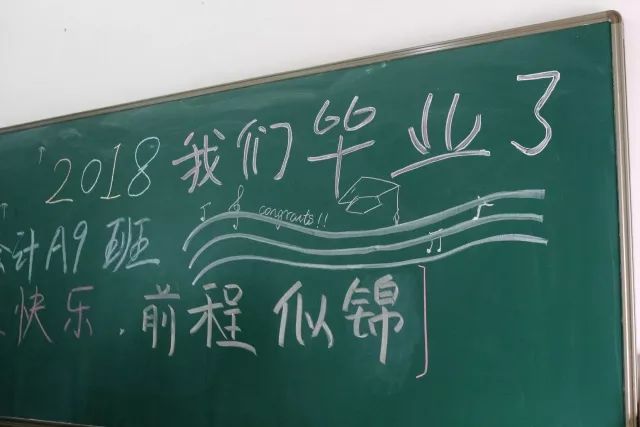 2018 我们毕业了
congraits!!
会计A9班
快乐,前程似锦